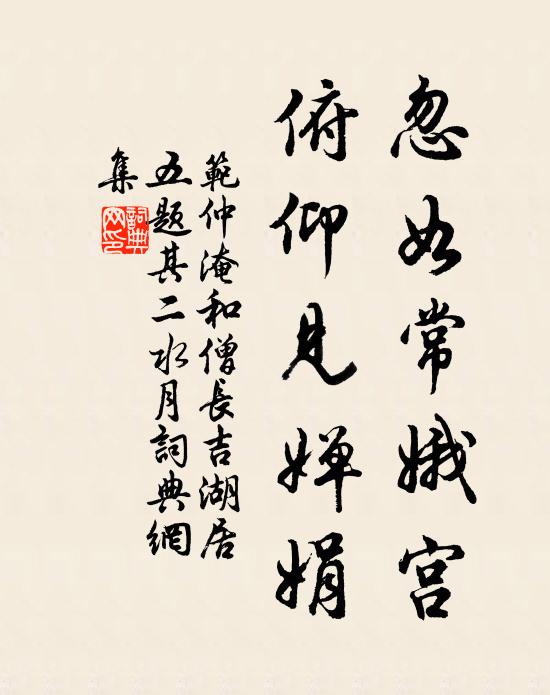 忽如常娥宫
俯仰见婵娟
範仲淹和僧長吉湖居
五题其二水月詞典網
集
詞典网印